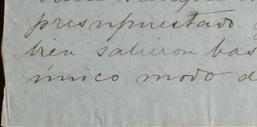 presupuestado y
bien salieron bas
único modo d